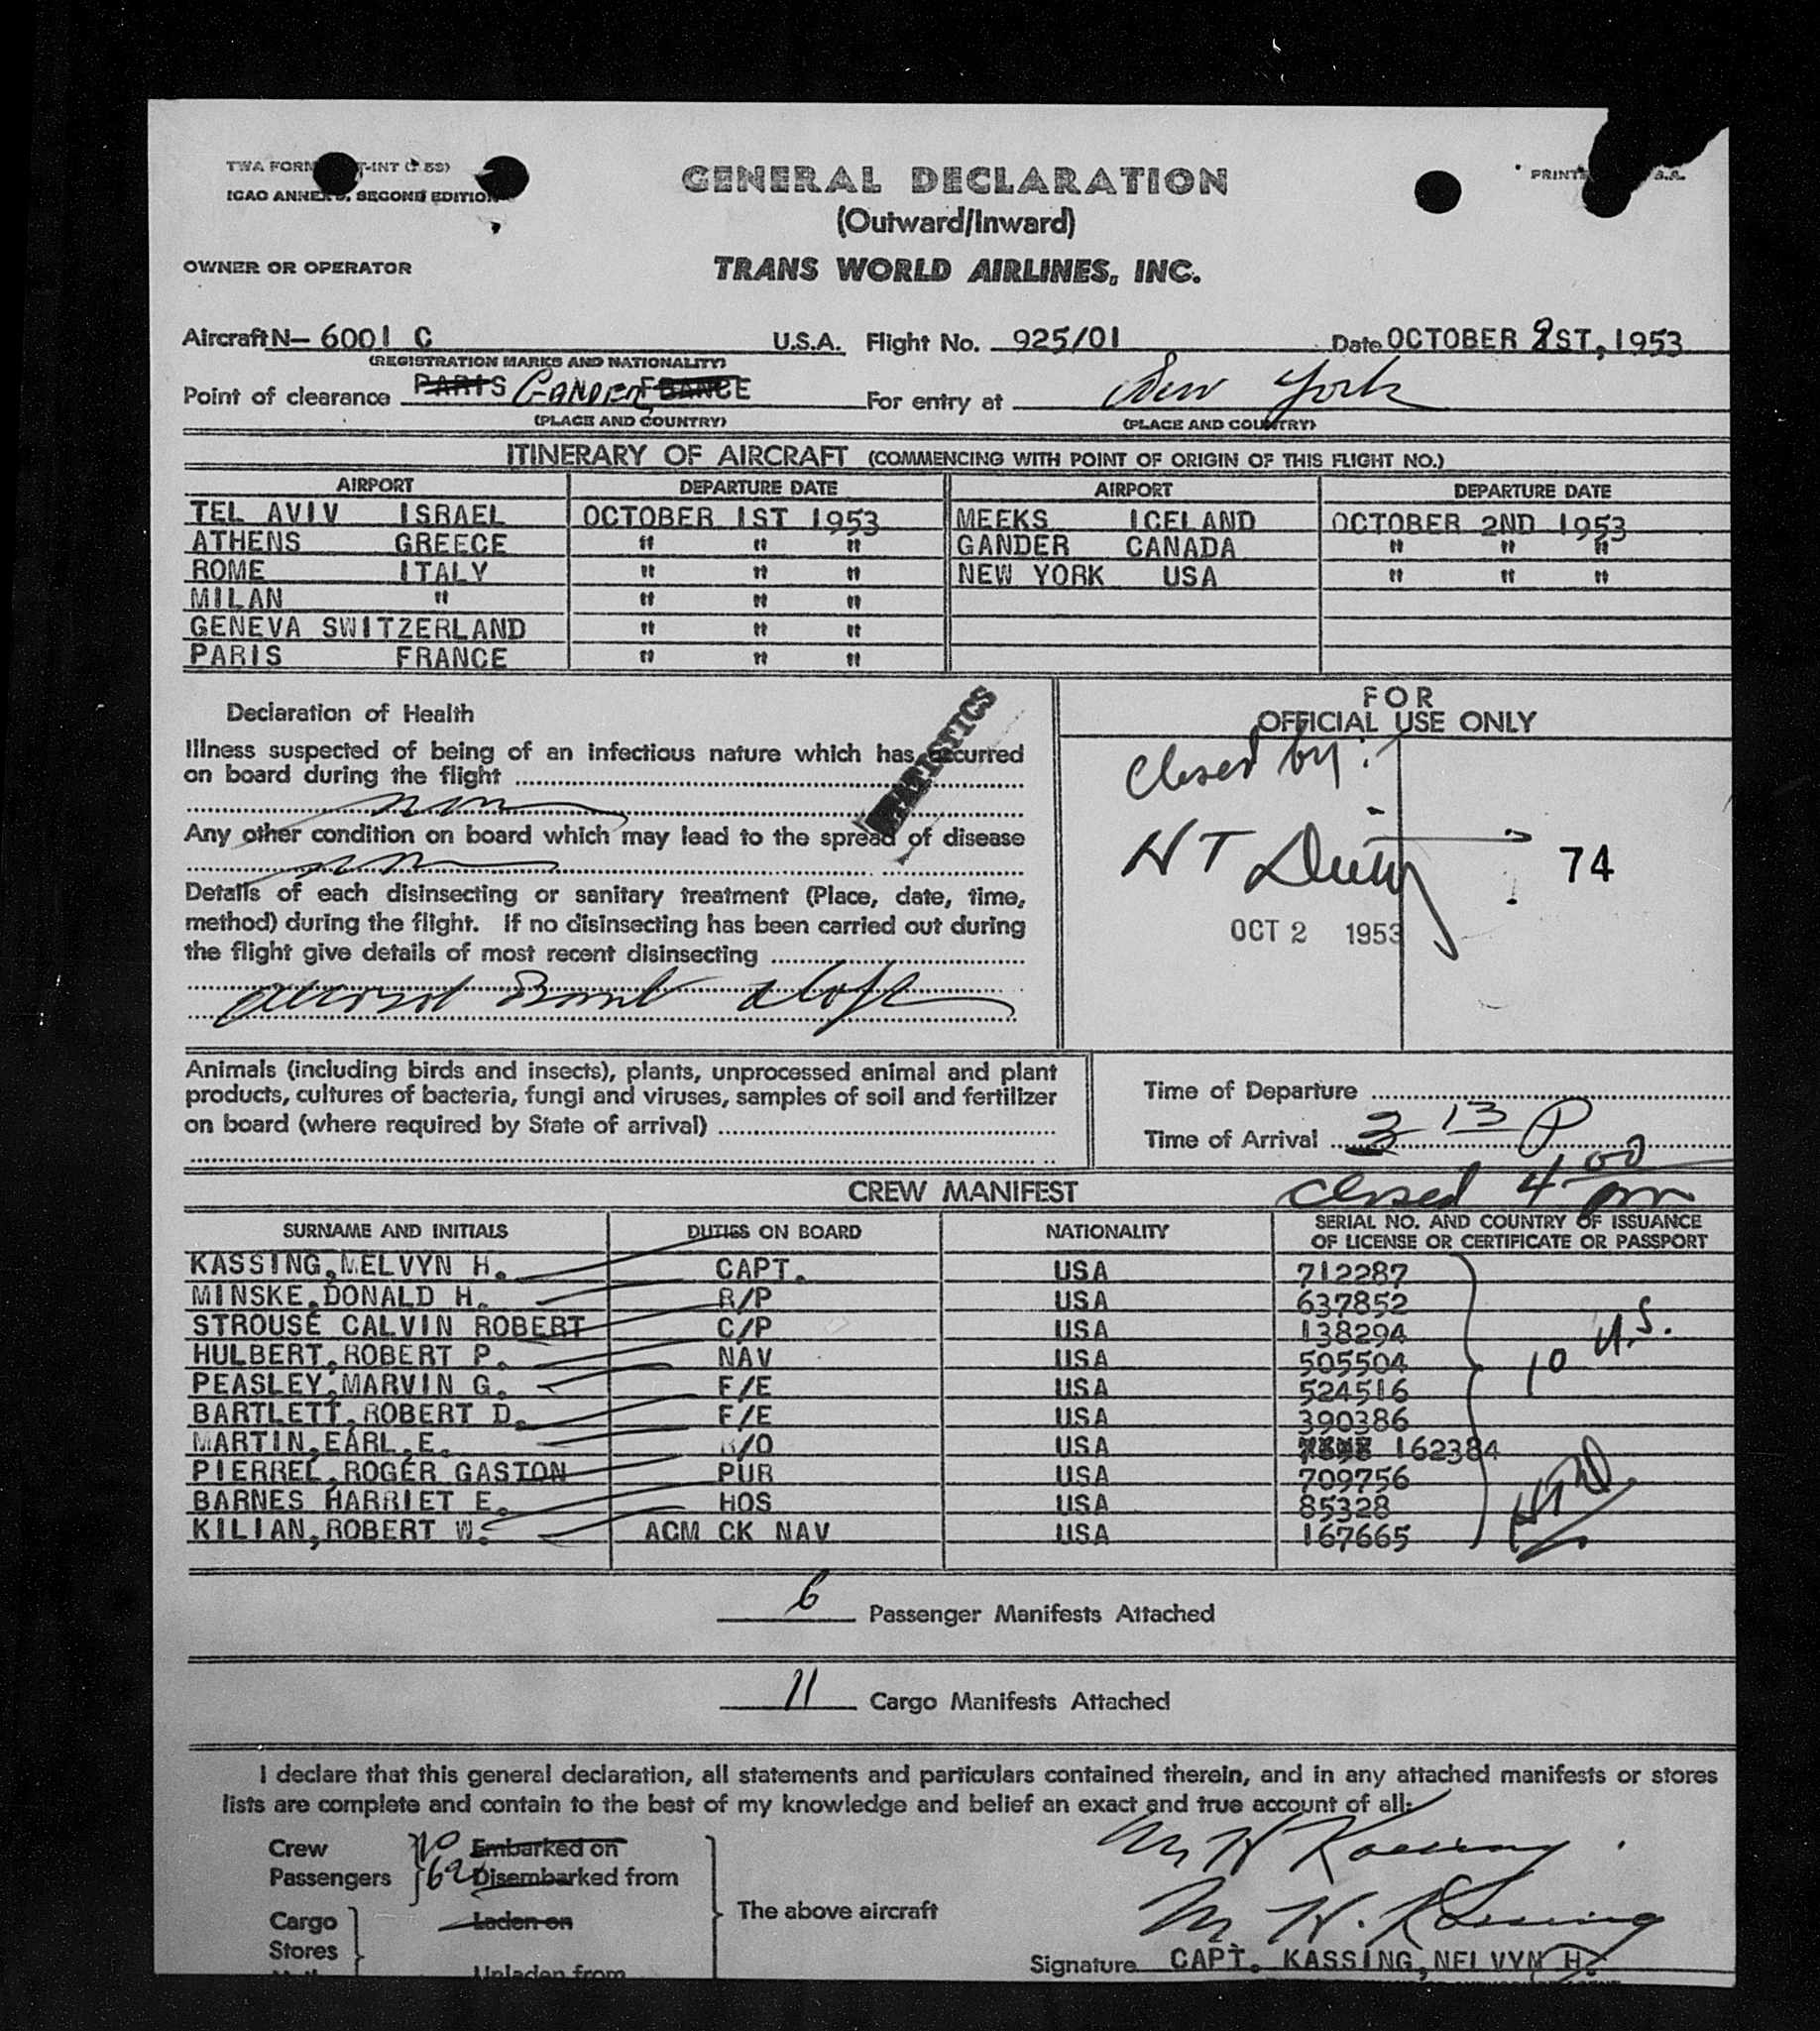 TWA FORM T-INT (7 53)
ICAO ANNEX 9, SECOND EDITION
GENERAL DECLARATION
(Outward/Inward)
OWNER OR OPERATOR
TRANS WORLD AIRLINES, INC.
Aircraft N— 6001 C U.S.A. Flight No. 925/01 Date OCTOBER 1ST, 1953
(REGISTRATION MARKS AND NATIONALITY)
Point of clearance PARIS GANDER FRANCE For entry at New York
(PLACE AND COUNTRY) (PLACE AND COUNTRY)
ITINERARY OF AIRCRAFT (COMMENCING WITH POINT OF ORIGIN OF THIS FLIGHT NO.)
AIRPORT DEPARTURE DATE AIRPORT DEPARTURE DATE
TEL AVIV ISRAEL OCTOBER 1ST 1953 MEEKS ICELAND OCTOBER 2ND 1953
ATHENS GREECE " " " GANDER CANADA " " "
ROME ITALY " " " NEW YORK USA " " "
MILAN " " " "
GENEVA SWITZERLAND " " "
PARIS FRANCE " " "
Declaration of Health
Illness suspected of being of an infectious nature which has occurred
on board during the flight
Any other condition on board which may lead to the spread of disease
Details of each disinsecting or sanitary treatment (Place, date, time,
method) during the flight. If no disinsecting has been carried out during
the flight give details of most recent disinsecting
Aerosol Bomb
STATISTICS
FOR
OFFICIAL USE ONLY
closed by:
74
OCT 2 1953
Animals (including birds and insects), plants, unprocessed animal and plant
products, cultures of bacteria, fungi and viruses, samples of soil and fertilizer
on board (where required by State of arrival)
Time of Departure
Time of Arrival 3 13 P
closed 4 00 pm
CREW MANIFEST
SURNAME AND INITIALS DUTIES ON BOARD NATIONALITY SERIAL NO. AND COUNTRY OF ISSUANCE
OF LICENSE OR CERTIFICATE OR PASSPORT
KASSING,MELVYN H. CAPT. USA 712287
MINSKE,DONALD H. R/P USA 637852
STROUSE CALVIN ROBERT C/P USA 138294
HULBERT,ROBERT P. NAV USA 505504
PEASLEY,MARVIN G. F/E USA 524516
BARTLETT,ROBERT D. F/E USA 390386
MARTIN,EARL,E. R/O USA 162384
PIERREL,ROGER GASTON PUR USA 709756
BARNES HARRIET E. HOS USA 85328
KILIAN,ROBERT W. ACM CK NAV USA 167665
10 U.S.
6 Passenger Manifests Attached
11 Cargo Manifests Attached
I declare that this general declaration, all statements and particulars contained therein, and in any attached manifests or stores
lists are complete and contain to the best of my knowledge and belief an exact and true account of all:
Crew 10 Embarked on
Passengers 62 Disembarked from
Cargo Laden on
Stores
Unladen from
The above aircraft
M H Kassing
M. H. Kassing
Signature CAPT. KASSING,NELVYN H.